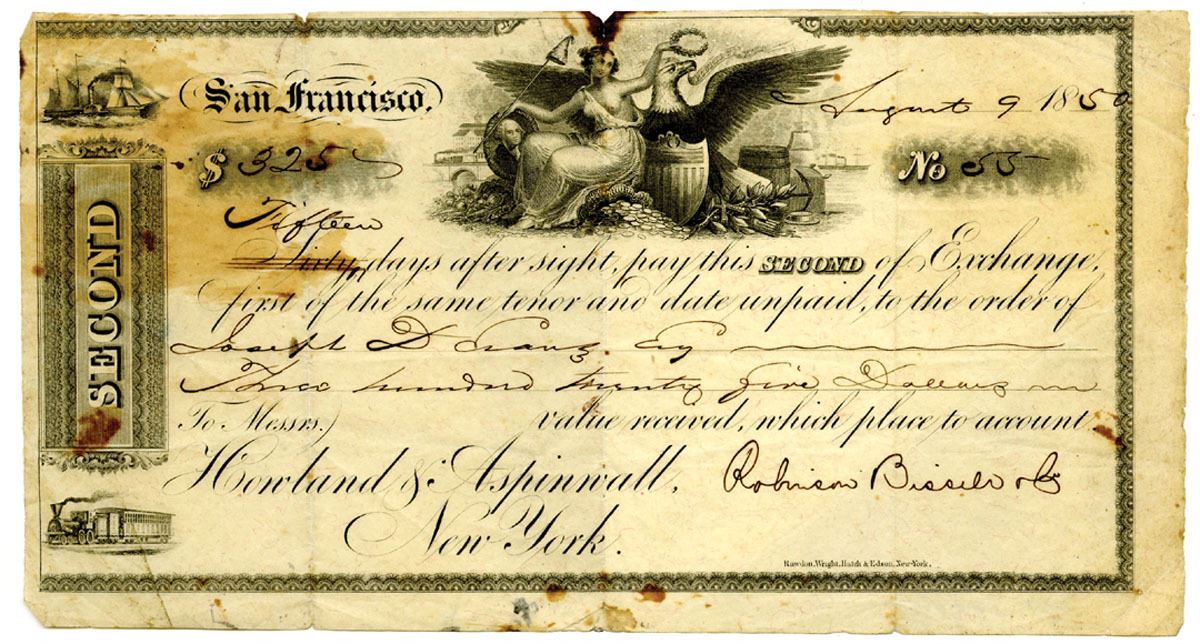 San Francisco,
August 9 1850
$ 325
No 55
SECOND
Fifteen
Sixty, days after sight, pay this SECOND of Exchange,
first of the same tenor and date unpaid, to the order of
Joseph D Evans. Esq
Three hundred twenty five Dollars
To Messrs.) value received, which place to account
Howland & Aspinwall, Robinson Bissell & Co
New York.
Rawdon, Wright, Hatch & Edson, New-York.